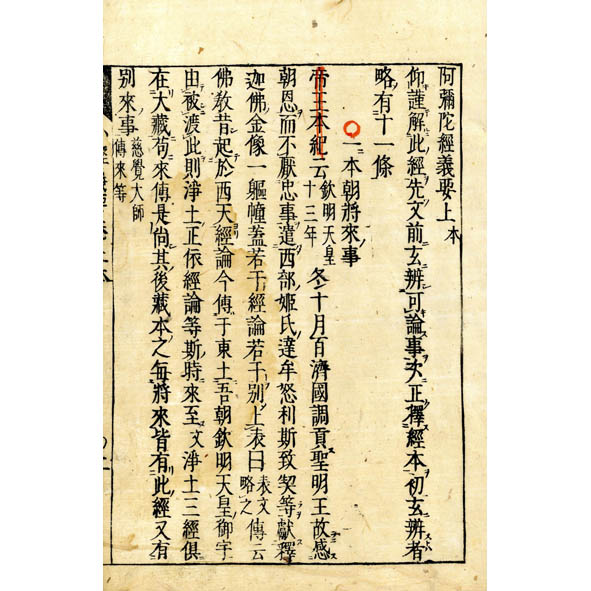 阿彌陀經義要上本
仰謹解此經先文前玄辨可論事次正擇經本初玄辨者
略有十一條
○一本朝將來事
帝王本紀云欽明天皇十三年冬十月百濟國調貢聖明王故感
朝恩而不厭忠事遣西部姬氏達牟怒利斯致契等獻釋
迦佛金像一軀幡蓋若干經論若干別上表曰表文略之傳云
佛教昔起於西天經論今傳于東土吾朝欽明天皇御宇
由被渡此則淨土正依經論等斯時來至文淨土三經俱
在大藏苟來傳是尚其後藏本之每將來皆有此經又有
別來事慈覺大師傳來等